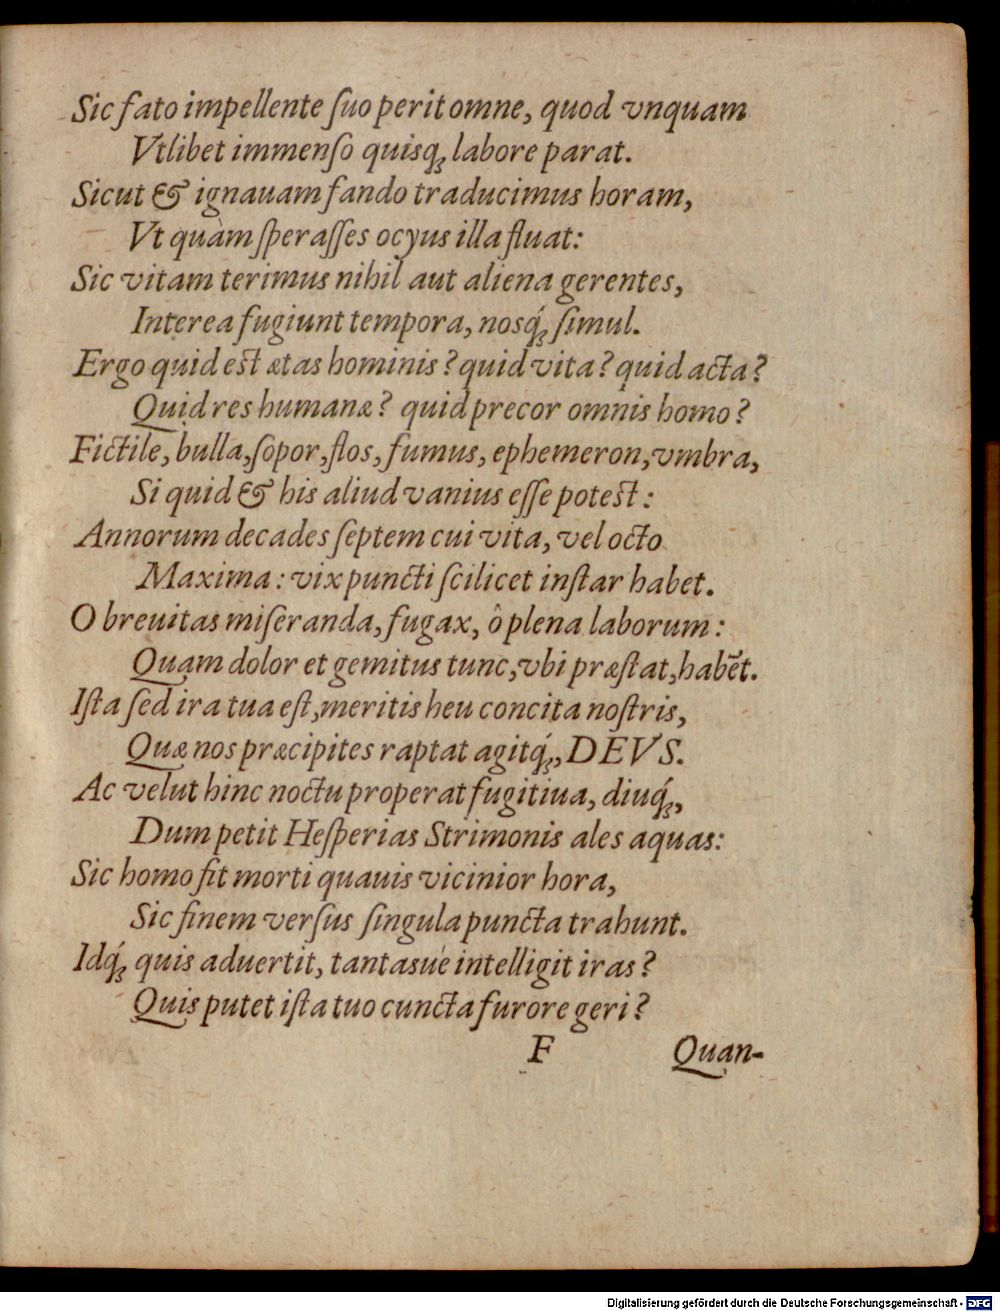 Sic fato impellente ſuo perit omne, quod vnquam
Vtlibet immenſo quisq́ꝫ labore parat.
Sicut & ignauam fando traducimus horam,
Vt quàm ſperaſſes ocyus illa fluat:
Sic vitam terimus nihil aut aliena gerentes,
Interea fugiunt tempora, nosq́ꝫ ſimul.
Ergo quid eſt ætas hominis? quid vita? quid acta?
Quid res humanæ? quid precor omnis homo?
Fictile, bulla, ſopor, flos, fumus, ephemeron, vmbra,
Si quid & his aliud vanius eſſe poteſt:
Annorum decades ſeptem cui vita, vel octo
Maxima: vix puncti ſcilicet inſtar habet.
O breuitas miſeranda, fugax, ô plena laborum:
Quam dolor et gemitus tunc, vbi præſtat, habēt.
Iſta ſed ira tua eſt, meritis heu concita noſtris,
Quæ nos præcipites raptat agitq́ꝫ, DEVS.
Ac velut hinc noctu properat fugitiua, diuq́ꝫ,
Dum petit Heſperias Strimonis ales aquas:
Sic homo fit morti quauis vicinior hora,
Sic finem verſus ſingula puncta trahunt.
Idq́ꝫ quis aduertit, tantasué intelligit iras?
Quis putet iſta tuo cuncta furore geri?
F Quan-
Digitalisierung gefördert durch die Deutsche Forschungsgemeinschaft - DFG